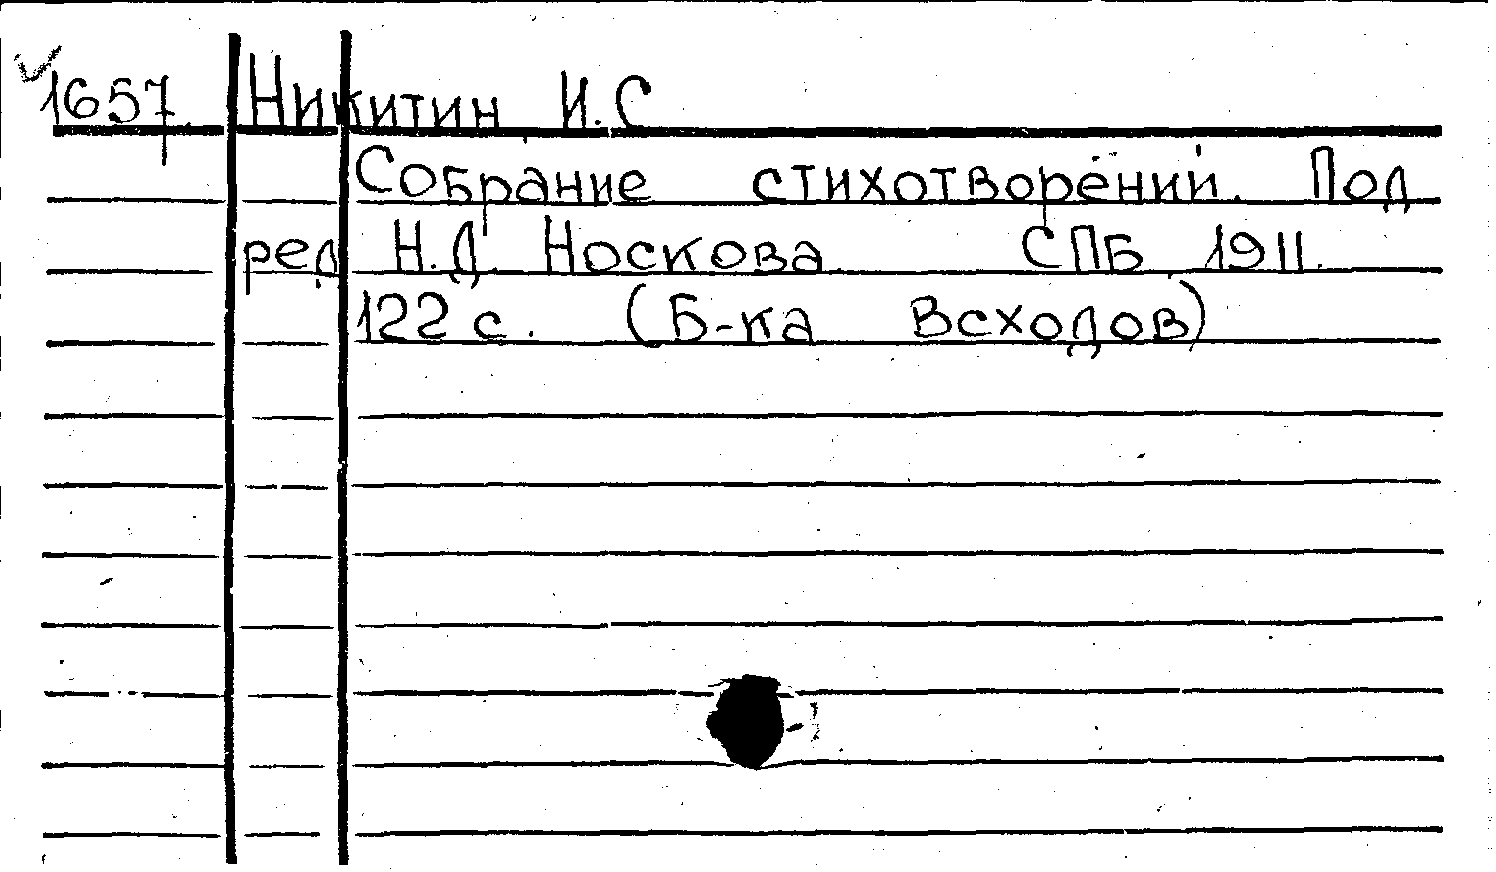 1657. Никитин И.С
Собрание стихотворений. Под
ред Н.Д. Носкова. СПБ, 1911.
122 с. (Б-ка Всходов)